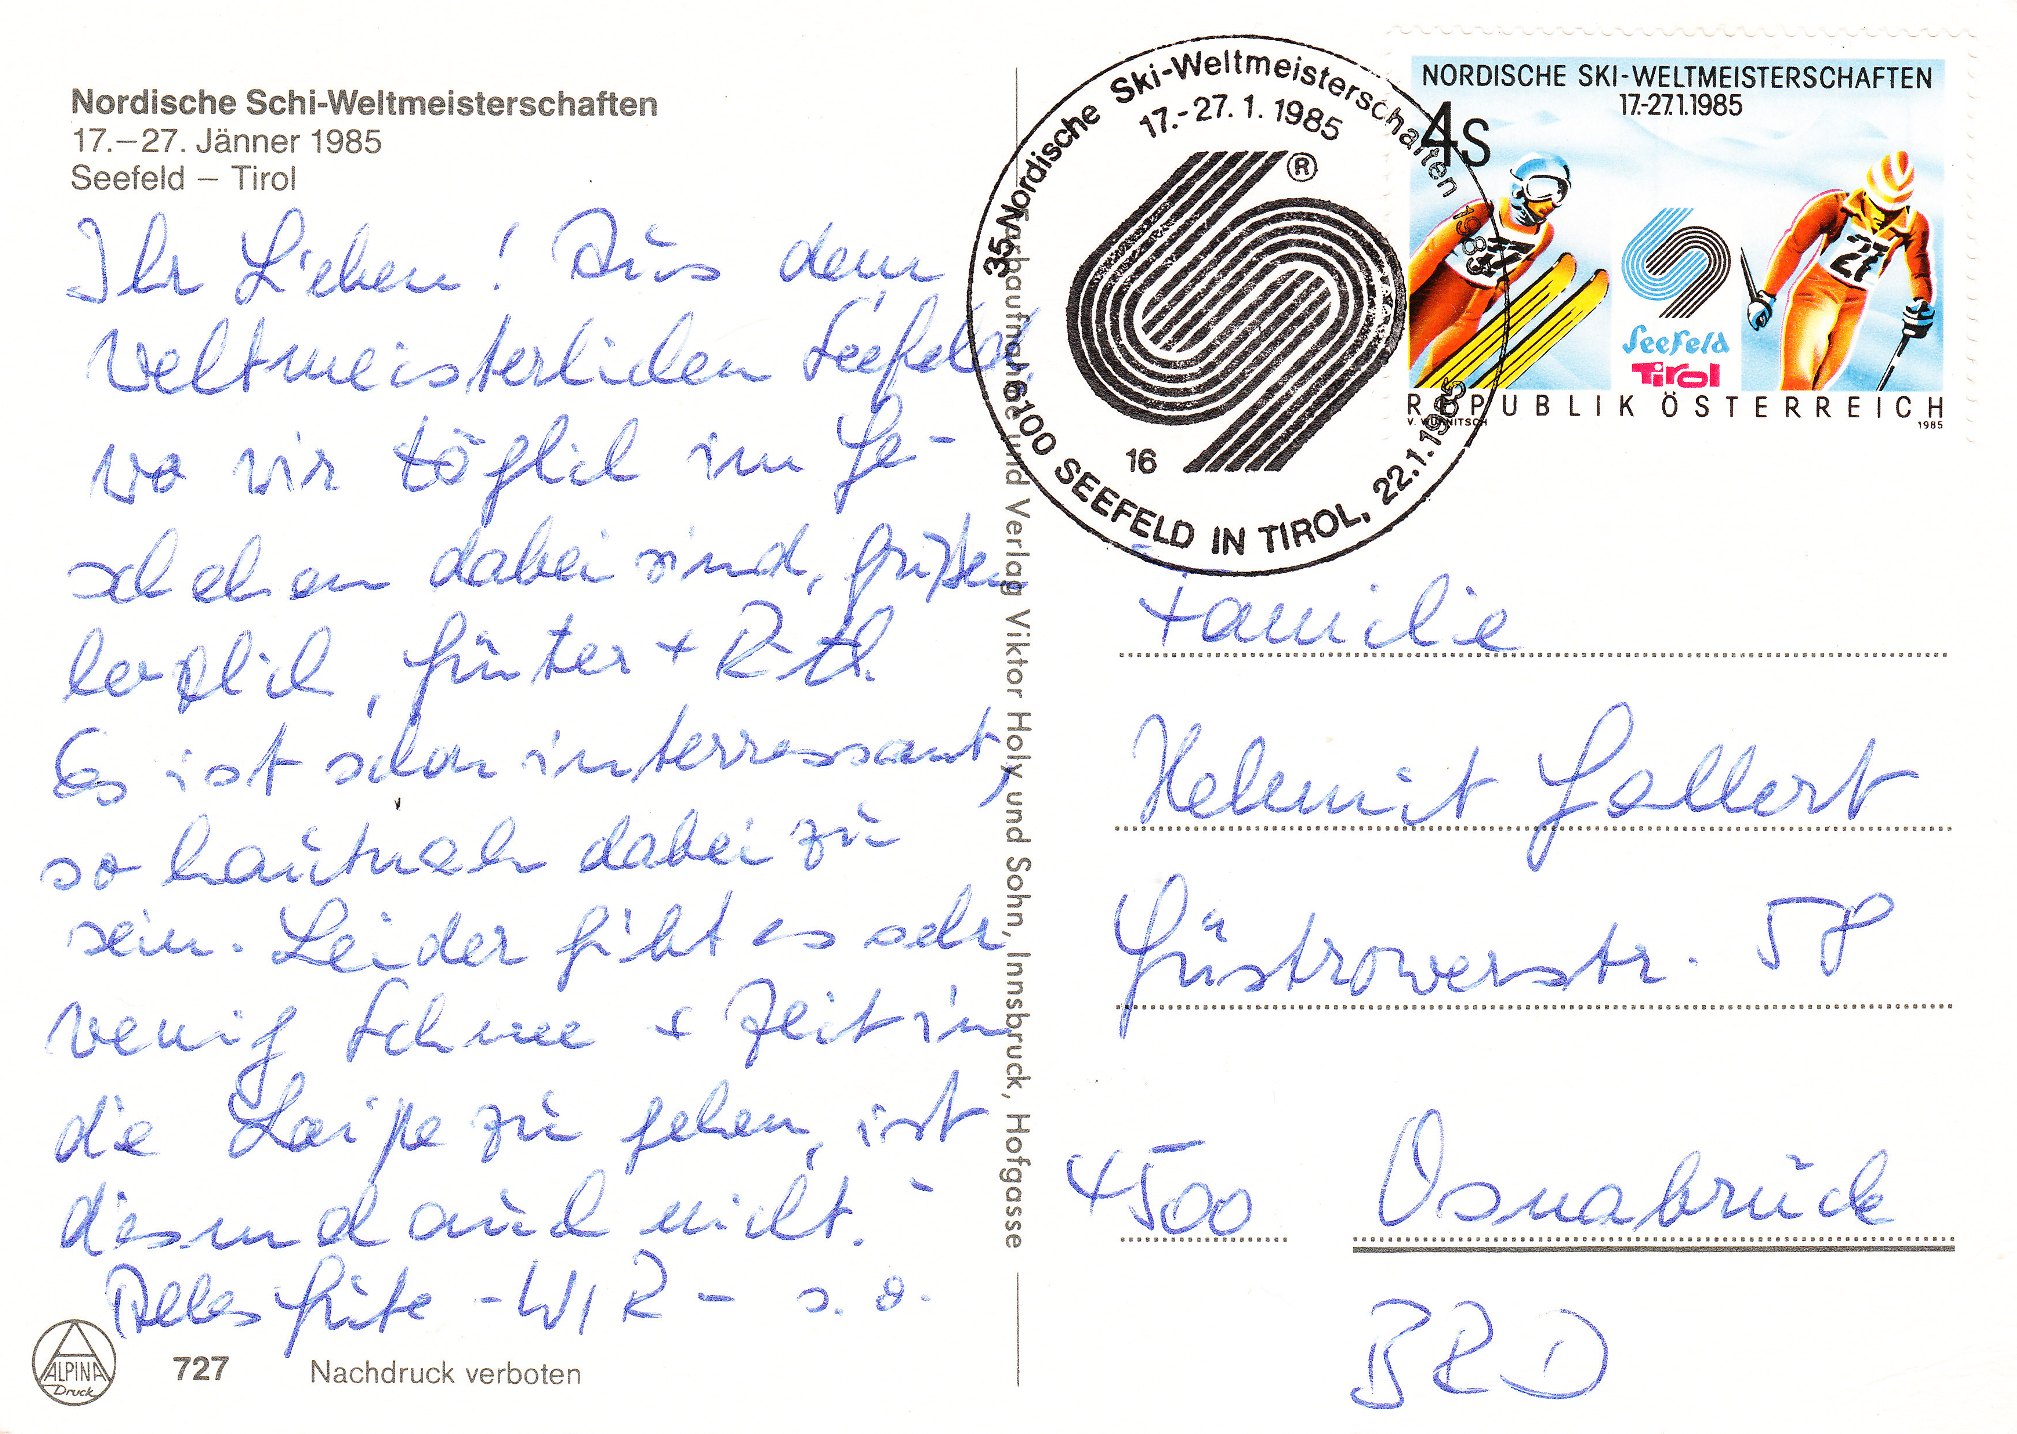 Nordische Schi-Weltmeisterschaften
17.–27. Jänner 1985
Seefeld – Tirol
Ihr Lieben! Aus dem
weltmeisterlichen Seefeld
wo wir täglich im Ge-
schehen dabei sind, grüßen
herzlich, Günter +
Es ist schon interressant,
so hautnah dabei zu
sein. Leider gibt es sehr
wenig Schnee + Zeit in
die Loipe zu gehen, ist
auch nicht.
Alles Gute - WIR - s. o.
ALPINA
Druck
727 Nachdruck verboten
Farbaufnahme und Verlag Viktor Holy und Sohn, Innsbruck, Hofgasse
35. Nordische Ski-Weltmeisterschaften 1985
17.-27.1.1985
®
16
6100 SEEFELD IN TIROL, 22.1.1985
NORDISCHE SKI-WELTMEISTERSCHAFTEN
17.-27.1.1985
4S
27
Seefeld
Tirol
REPUBLIK ÖSTERREICH
1985
Familie
Helmut Gallert
Güstrowerstr. 58
4500 Osnabrück
BRD